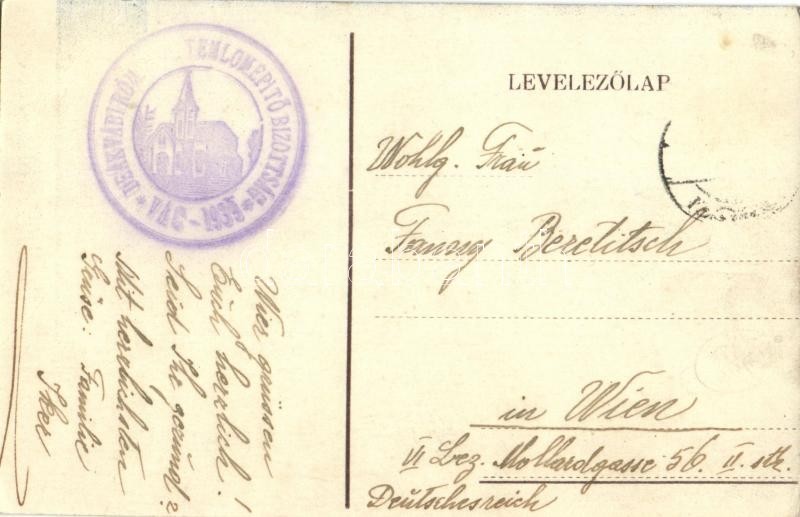 TEMLOMÉPITŐ BIZOTTSÁG
VÁC - 1935
LEVELEZŐLAP
Wohlg. Frau
Fanny Beretitsch
in Wien
VI Bez. Mollardgasse 56. II. stk.
Deutschesreich
Wier grüssen
Euch herrlich!
Seid Ihr gezund?
Mit herzlichsten
Familie